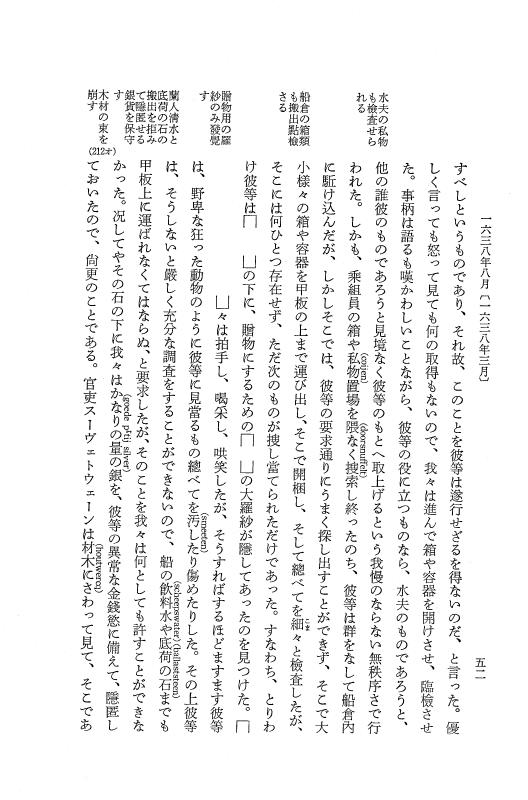 一六三八年八月〔一六三八年三月〕
五二
すべしというものであり、それ故、このことを彼等は遂行せざるを得ないのだ、と言った。優
しく言っても怒って見ても何の取得もないので、我々は進んで箱や容器を開けさせ、臨檢させ
た。事柄は語るも嘆かわしいことながら、彼等の役に立つものなら、水夫のものであろうと、
他の誰彼のものであろうと見境なく彼等のもとへ取上げるという我慢のならない無秩序さで行
われた。しかも、乘組員の箱や私物置場を隈なく捜索し終ったのち、彼等は群をなして船倉内
(cotijen)
(doorsnuffelt)
に駈け込んだが、しかしそこでは、彼等の要求通りにうまく探し出すことができず、そこで大
小様々の箱や容器を甲板の上まで運び出し、そこで開梱し、そして總べてを細々と檢査したが、
こま
そこには何ひとつ存在せず、ただ次のものが捜し當てられただけであった。すなわち、とりわ
け彼等は〔 〕の下に、贈物にするための〔 〕の大羅紗が隱してあったのを見つけた。〔
〕々は拍手し、喝采し、哄笑したが、そうすればするほどますます彼等
は、野卑な狂った動物のように彼等に見當るもの總べてを汚したり傷めたりした。その上彼等
(smeeten)
は、そうしないと嚴しく充分な調査をすることができないので、船の飲料水や底荷の石までも
(scheepswater) (ballaststeen)
甲板上に運ばれなくてはならぬ、と要求したが、そのことを我々は何としても許すことができな
かった。況してやその石の下に我々はかなりの量の銀を、彼等の異常な金錢慾に備えて、隱匿し
(goede p'tij silver)
ておいたので、尙更のことである。官吏スーヴェトウェーンは材木にさわって見て、そこであ
(houtwerck)
水夫の私物
も檢査せら
れる
船倉の箱類
も搬出點檢
さる
贈物用の羅
紗のみ發覺
す
蘭人清水と
底荷の石の
搬出を拒み
て隱匿せる
銀貨を保守
す
木材の束を
崩す
(212オ)